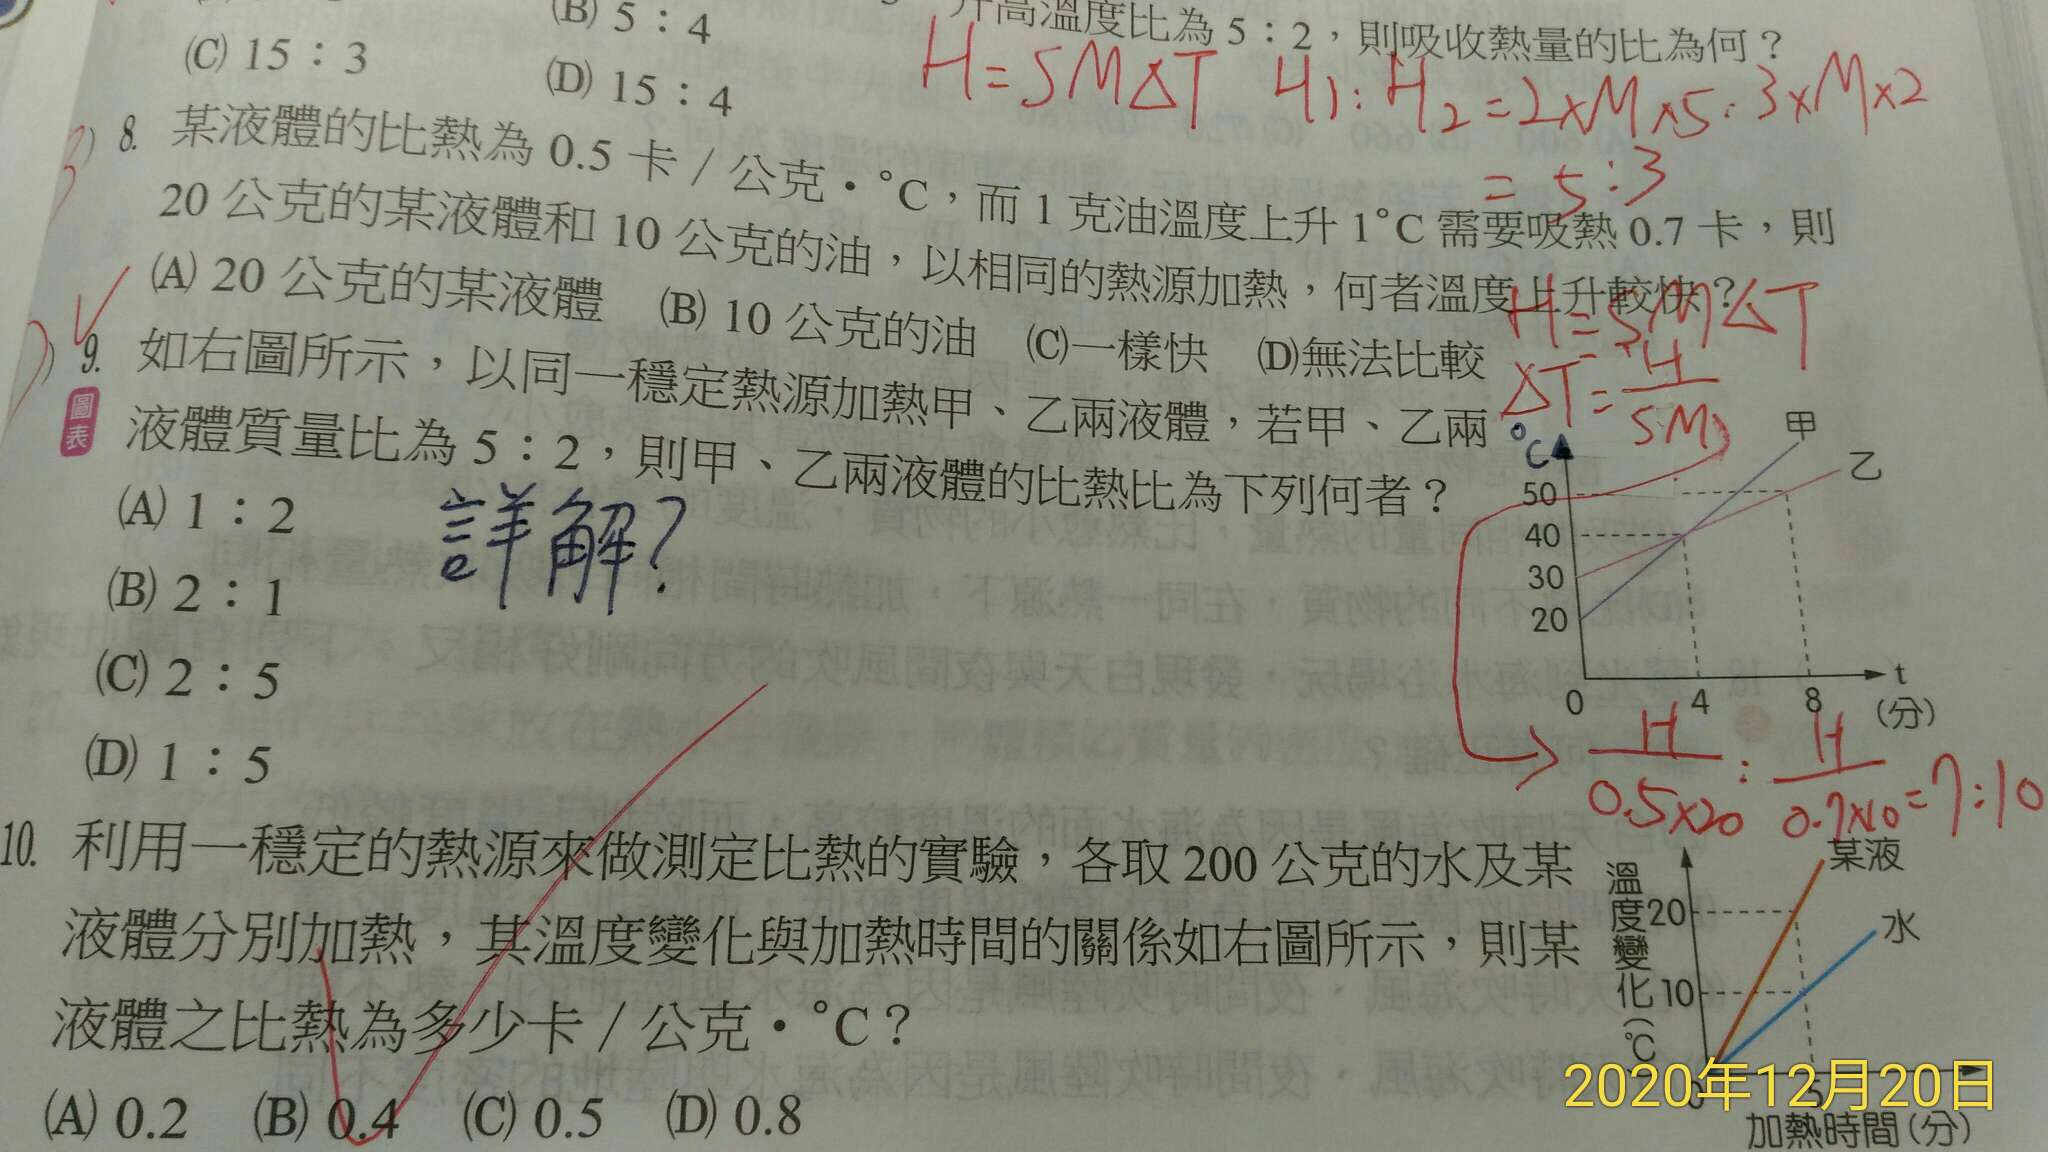 (B) 5：4
升高溫度比為 5：2，則吸收熱量的比為何？
(C) 15：3
(D) 15：4
H=SMΔT H1:H2=2×M×5:3×M×2
=5:3
8. 某液體的比熱為 0.5 卡／公克・°C，而 1 克油溫度上升 1°C 需要吸熱 0.7 卡，則
20 公克的某液體和 10 公克的油，以相同的熱源加熱，何者溫度上升較快？
(A) 20 公克的某液體 (B) 10 公克的油 (C)一樣快 (D)無法比較
H=SMΔT
ΔT=H/SM
9. 如右圖所示，以同一穩定熱源加熱甲、乙兩液體，若甲、乙兩
圖表
液體質量比為 5：2，則甲、乙兩液體的比熱比為下列何者？
(A) 1：2
(B) 2：1
(C) 2：5
(D) 1：5
詳解?
°C
甲
乙
50
40
30
20
0 4 8 t
(分)
H/0.5×20 : H/0.7×10 =7:10
10. 利用一穩定的熱源來做測定比熱的實驗，各取 200 公克的水及某
液體分別加熱，其溫度變化與加熱時間的關係如右圖所示，則某
液體之比熱為多少卡／公克・°C？
(A) 0.2 (B) 0.4 (C) 0.5 (D) 0.8
溫度變化(°C)
某液
水
20
10
加熱時間(分)
2020年12月20日